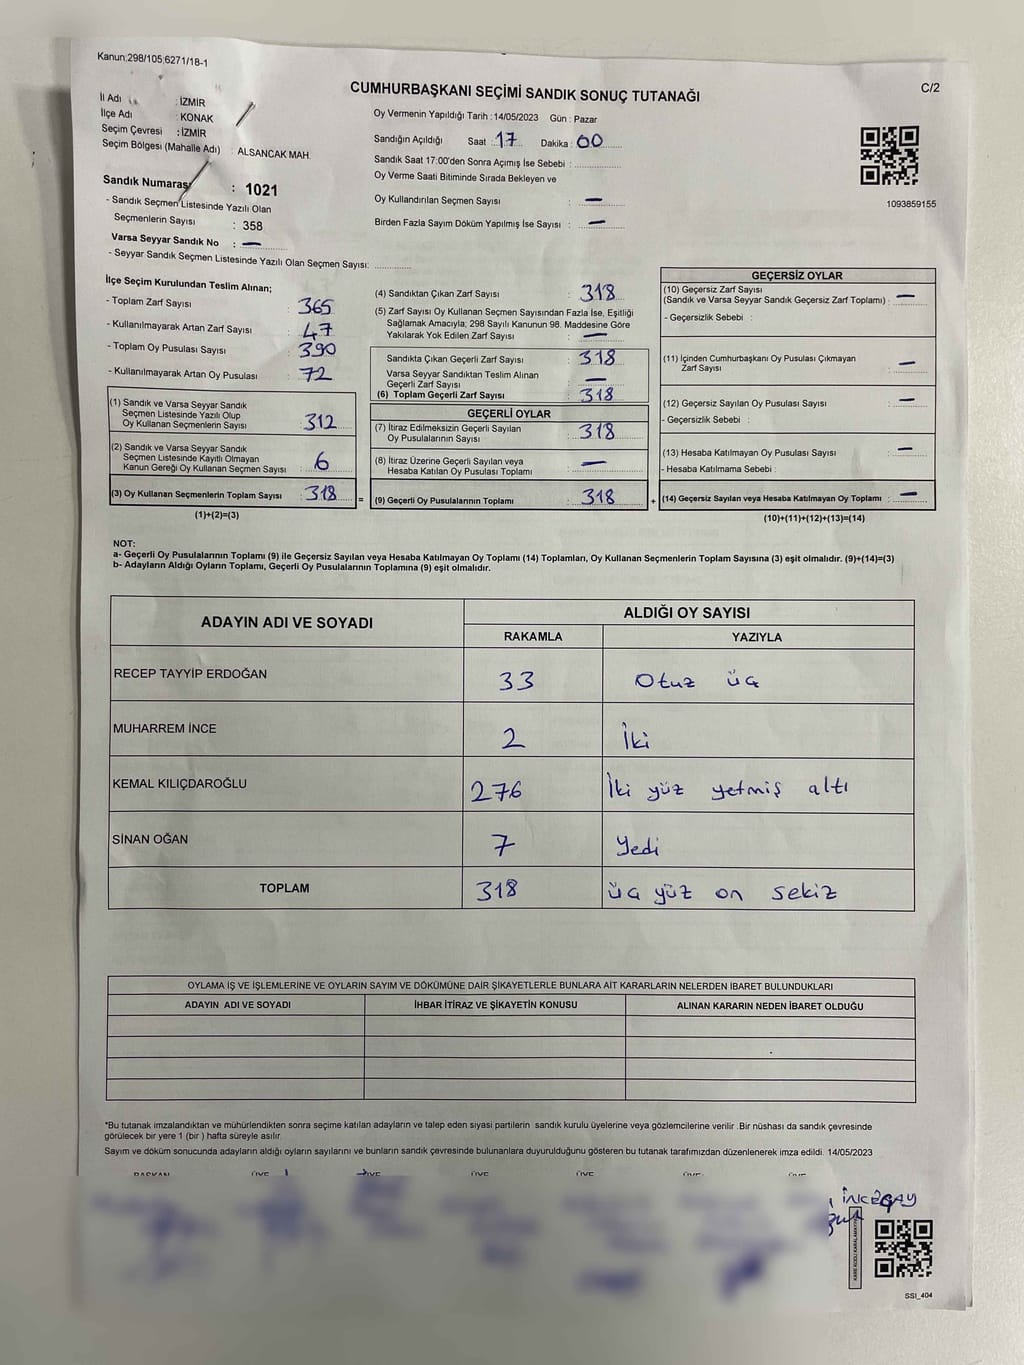 Kanun:298/105;6271/18-1
C/2
CUMHURBAŞKANI SEÇİMİ SANDIK SONUÇ TUTANAĞI
İl Adı : İZMİR
İlçe Adı : KONAK
Seçim Çevresi : İZMİR
Seçim Bölgesi (Mahalle Adı) : ALSANCAK MAH.
Sandık Numarası : 1021
- Sandık Seçmen Listesinde Yazılı Olan
Seçmenlerin Sayısı : 358
Varsa Seyyar Sandık No : —
- Seyyar Sandık Seçmen Listesinde Yazılı Olan Seçmen Sayısı: ............
Oy Vermenin Yapıldığı Tarih : 14/05/2023 Gün : Pazar
Sandığın Açıldığı Saat : 17 Dakika : 00
Sandık Saat 17:00'den Sonra Açımış İse Sebebi : ............
Oy Verme Saati Bitiminde Sırada Bekleyen ve
Oy Kullandırılan Seçmen Sayısı : —
Birden Fazla Sayım Döküm Yapılmış İse Sayısı : —
1093859155
İlçe Seçim Kurulundan Teslim Alınan;
- Toplam Zarf Sayısı : 365
- Kullanılmayarak Artan Zarf Sayısı : 47
- Toplam Oy Pusulası Sayısı : 390
- Kullanılmayarak Artan Oy Pusulası : 72
(1) Sandık ve Varsa Seyyar Sandık
Seçmen Listesinde Yazılı Olup
Oy Kullanan Seçmenlerin Sayısı : 312
(2) Sandık ve Varsa Seyyar Sandık
Seçmen Listesinde Kayıtlı Olmayan
Kanun Gereği Oy Kullanan Seçmen Sayısı : 6
(3) Oy Kullanan Seçmenlerin Toplam Sayısı : 318
(1)+(2)=(3)
=
(4) Sandıktan Çıkan Zarf Sayısı : 318
(5) Zarf Sayısı Oy Kullanan Seçmen Sayısından Fazla İse, Eşitliği
Sağlamak Amacıyla, 298 Sayılı Kanunun 98. Maddesine Göre
Yakılarak Yok Edilen Zarf Sayısı : —
Sandıkta Çıkan Geçerli Zarf Sayısı : 318
Varsa Seyyar Sandıktan Teslim Alınan
Geçerli Zarf Sayısı : —
(6) Toplam Geçerli Zarf Sayısı : 318
GEÇERLİ OYLAR
(7) İtiraz Edilmeksizin Geçerli Sayılan
Oy Pusulalarının Sayısı : 318
(8) İtiraz Üzerine Geçerli Sayılan veya
Hesaba Katılan Oy Pusulası Toplamı : —
(9) Geçerli Oy Pusulalarının Toplamı : 318
+
GEÇERSİZ OYLAR
(10) Geçersiz Zarf Sayısı
(Sandık ve Varsa Seyyar Sandık Geçersiz Zarf Toplamı) : —
- Geçersizlik Sebebi :
(11) İçinden Cumhurbaşkanı Oy Pusulası Çıkmayan
Zarf Sayısı : —
(12) Geçersiz Sayılan Oy Pusulası Sayısı : —
- Geçersizlik Sebebi :
(13) Hesaba Katılmayan Oy Pusulası Sayısı : —
- Hesaba Katılmama Sebebi :
(14) Geçersiz Sayılan veya Hesaba Katılmayan Oy Toplamı : —
(10)+(11)+(12)+(13)=(14)
NOT:
a- Geçerli Oy Pusulalarının Toplamı (9) ile Geçersiz Sayılan veya Hesaba Katılmayan Oy Toplamı (14) Toplamları, Oy Kullanan Seçmenlerin Toplam Sayısına (3) eşit olmalıdır. (9)+(14)=(3)
b- Adayların Aldığı Oyların Toplamı, Geçerli Oy Pusulalarının Toplamına (9) eşit olmalıdır.
ADAYIN ADI VE SOYADI ALDIĞI OY SAYISI
RAKAMLA YAZIYLA
RECEP TAYYİP ERDOĞAN 33 Otuz üç
MUHARREM İNCE 2 İki
KEMAL KILIÇDAROĞLU 276 İki yüz yetmiş altı
SİNAN OĞAN 7 Yedi
TOPLAM 318 üç yüz on sekiz
OYLAMA İŞ VE İŞLEMLERİNE VE OYLARIN SAYIM VE DÖKÜMÜNE DAİR ŞİKAYETLERLE BUNLARA AİT KARARLARIN NELERDEN İBARET BULUNDUKLARI
ADAYIN ADI VE SOYADI İHBAR İTİRAZ VE ŞİKAYETİN KONUSU ALINAN KARARIN NEDEN İBARET OLDUĞU
*Bu tutanak imzalandıktan ve mühürlendikten sonra seçime katılan adayların ve talep eden siyasi partilerin sandık kurulu üyelerine veya gözlemcilerine verilir .Bir nüshası da sandık çevresinde
görülecek bir yere 1 (bir ) hafta süreyle asılır.
Sayım ve döküm sonucunda adayların aldığı oyların sayılarını ve bunların sandık çevresinde bulunanlara duyurulduğunu gösteren bu tutanak tarafımızdan düzenlenerek imza edildi. 14/05/2023
BAŞKAN ÜYE ÜYE ÜYE ÜYE ÜYE ÜYE
KARE KODU KARALAMAYIN
SSI_404